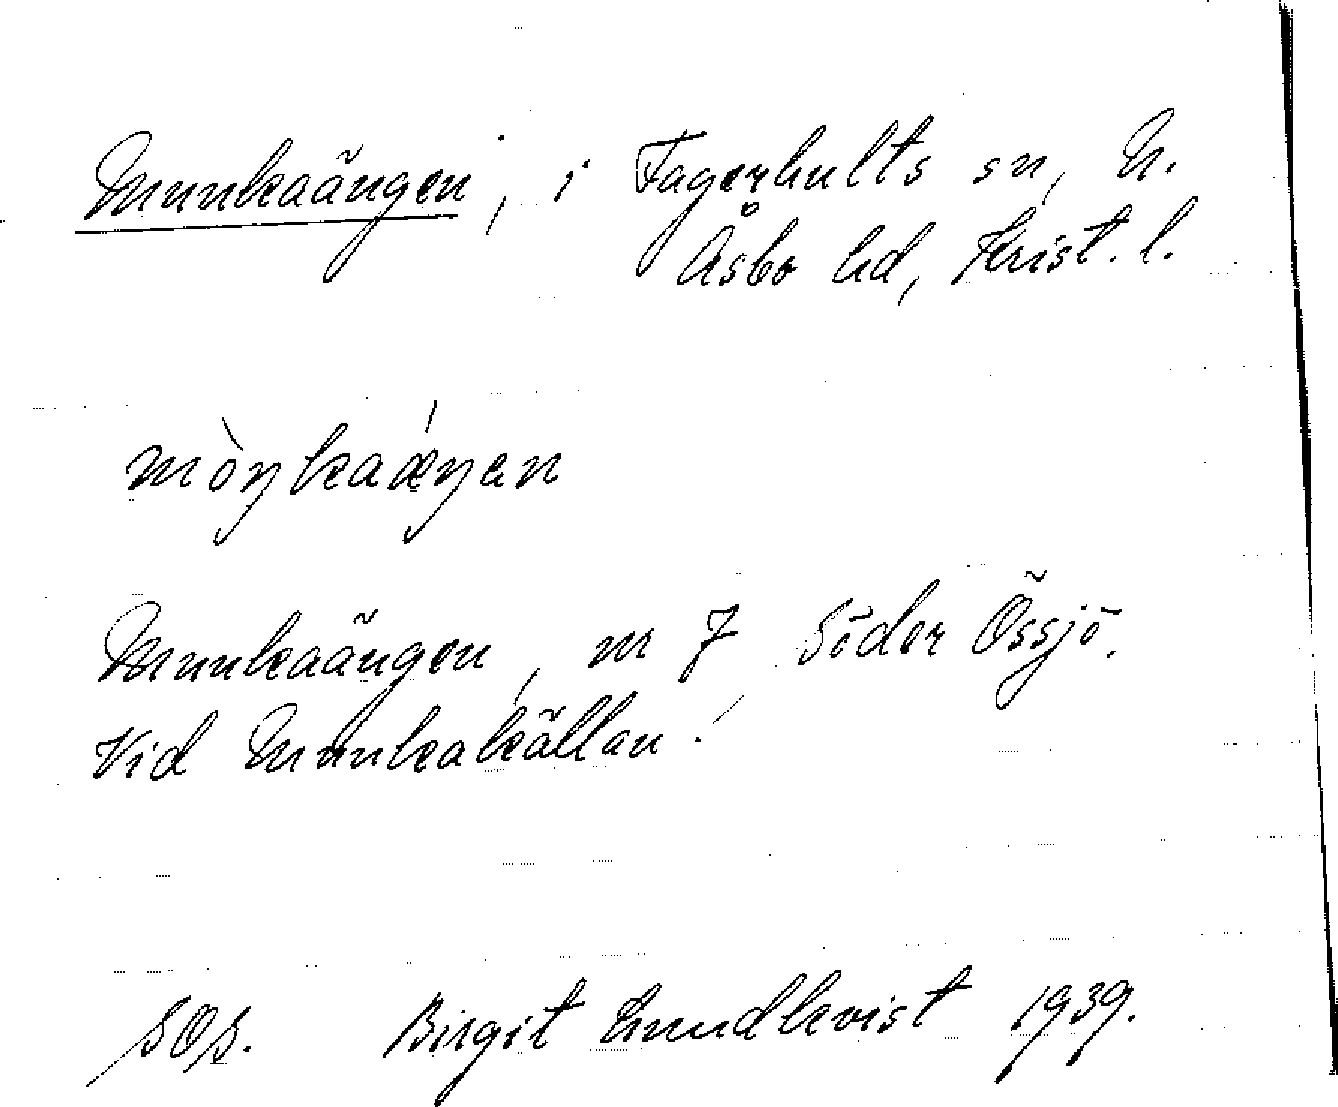 Munkaängen, i Fagerhults sn, N.
Åsbo hd, Krist. l.
mòŋkaǽŋan
Munkaängen, nr 7 Söder Össjö.
Vid Munkakällan!
SOS. Birgit Lundkvist 1939.